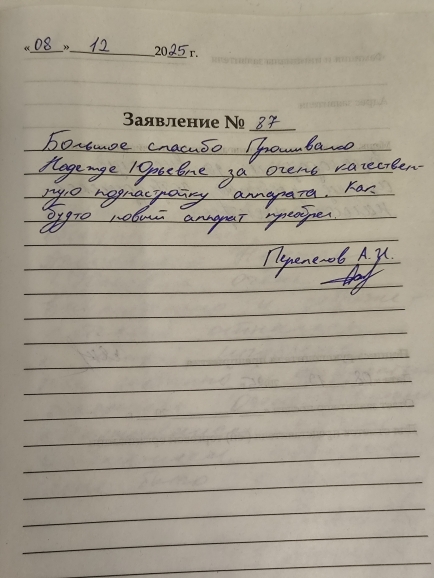 «08» 12 2025 г.
Заявление № 87
Большое спасибо Прошивалко
Надежде Юрьевне за очень качествен-
ную поднастройку аппарата. Как
будто новый аппарат преобрел.
Перепелов А.И.